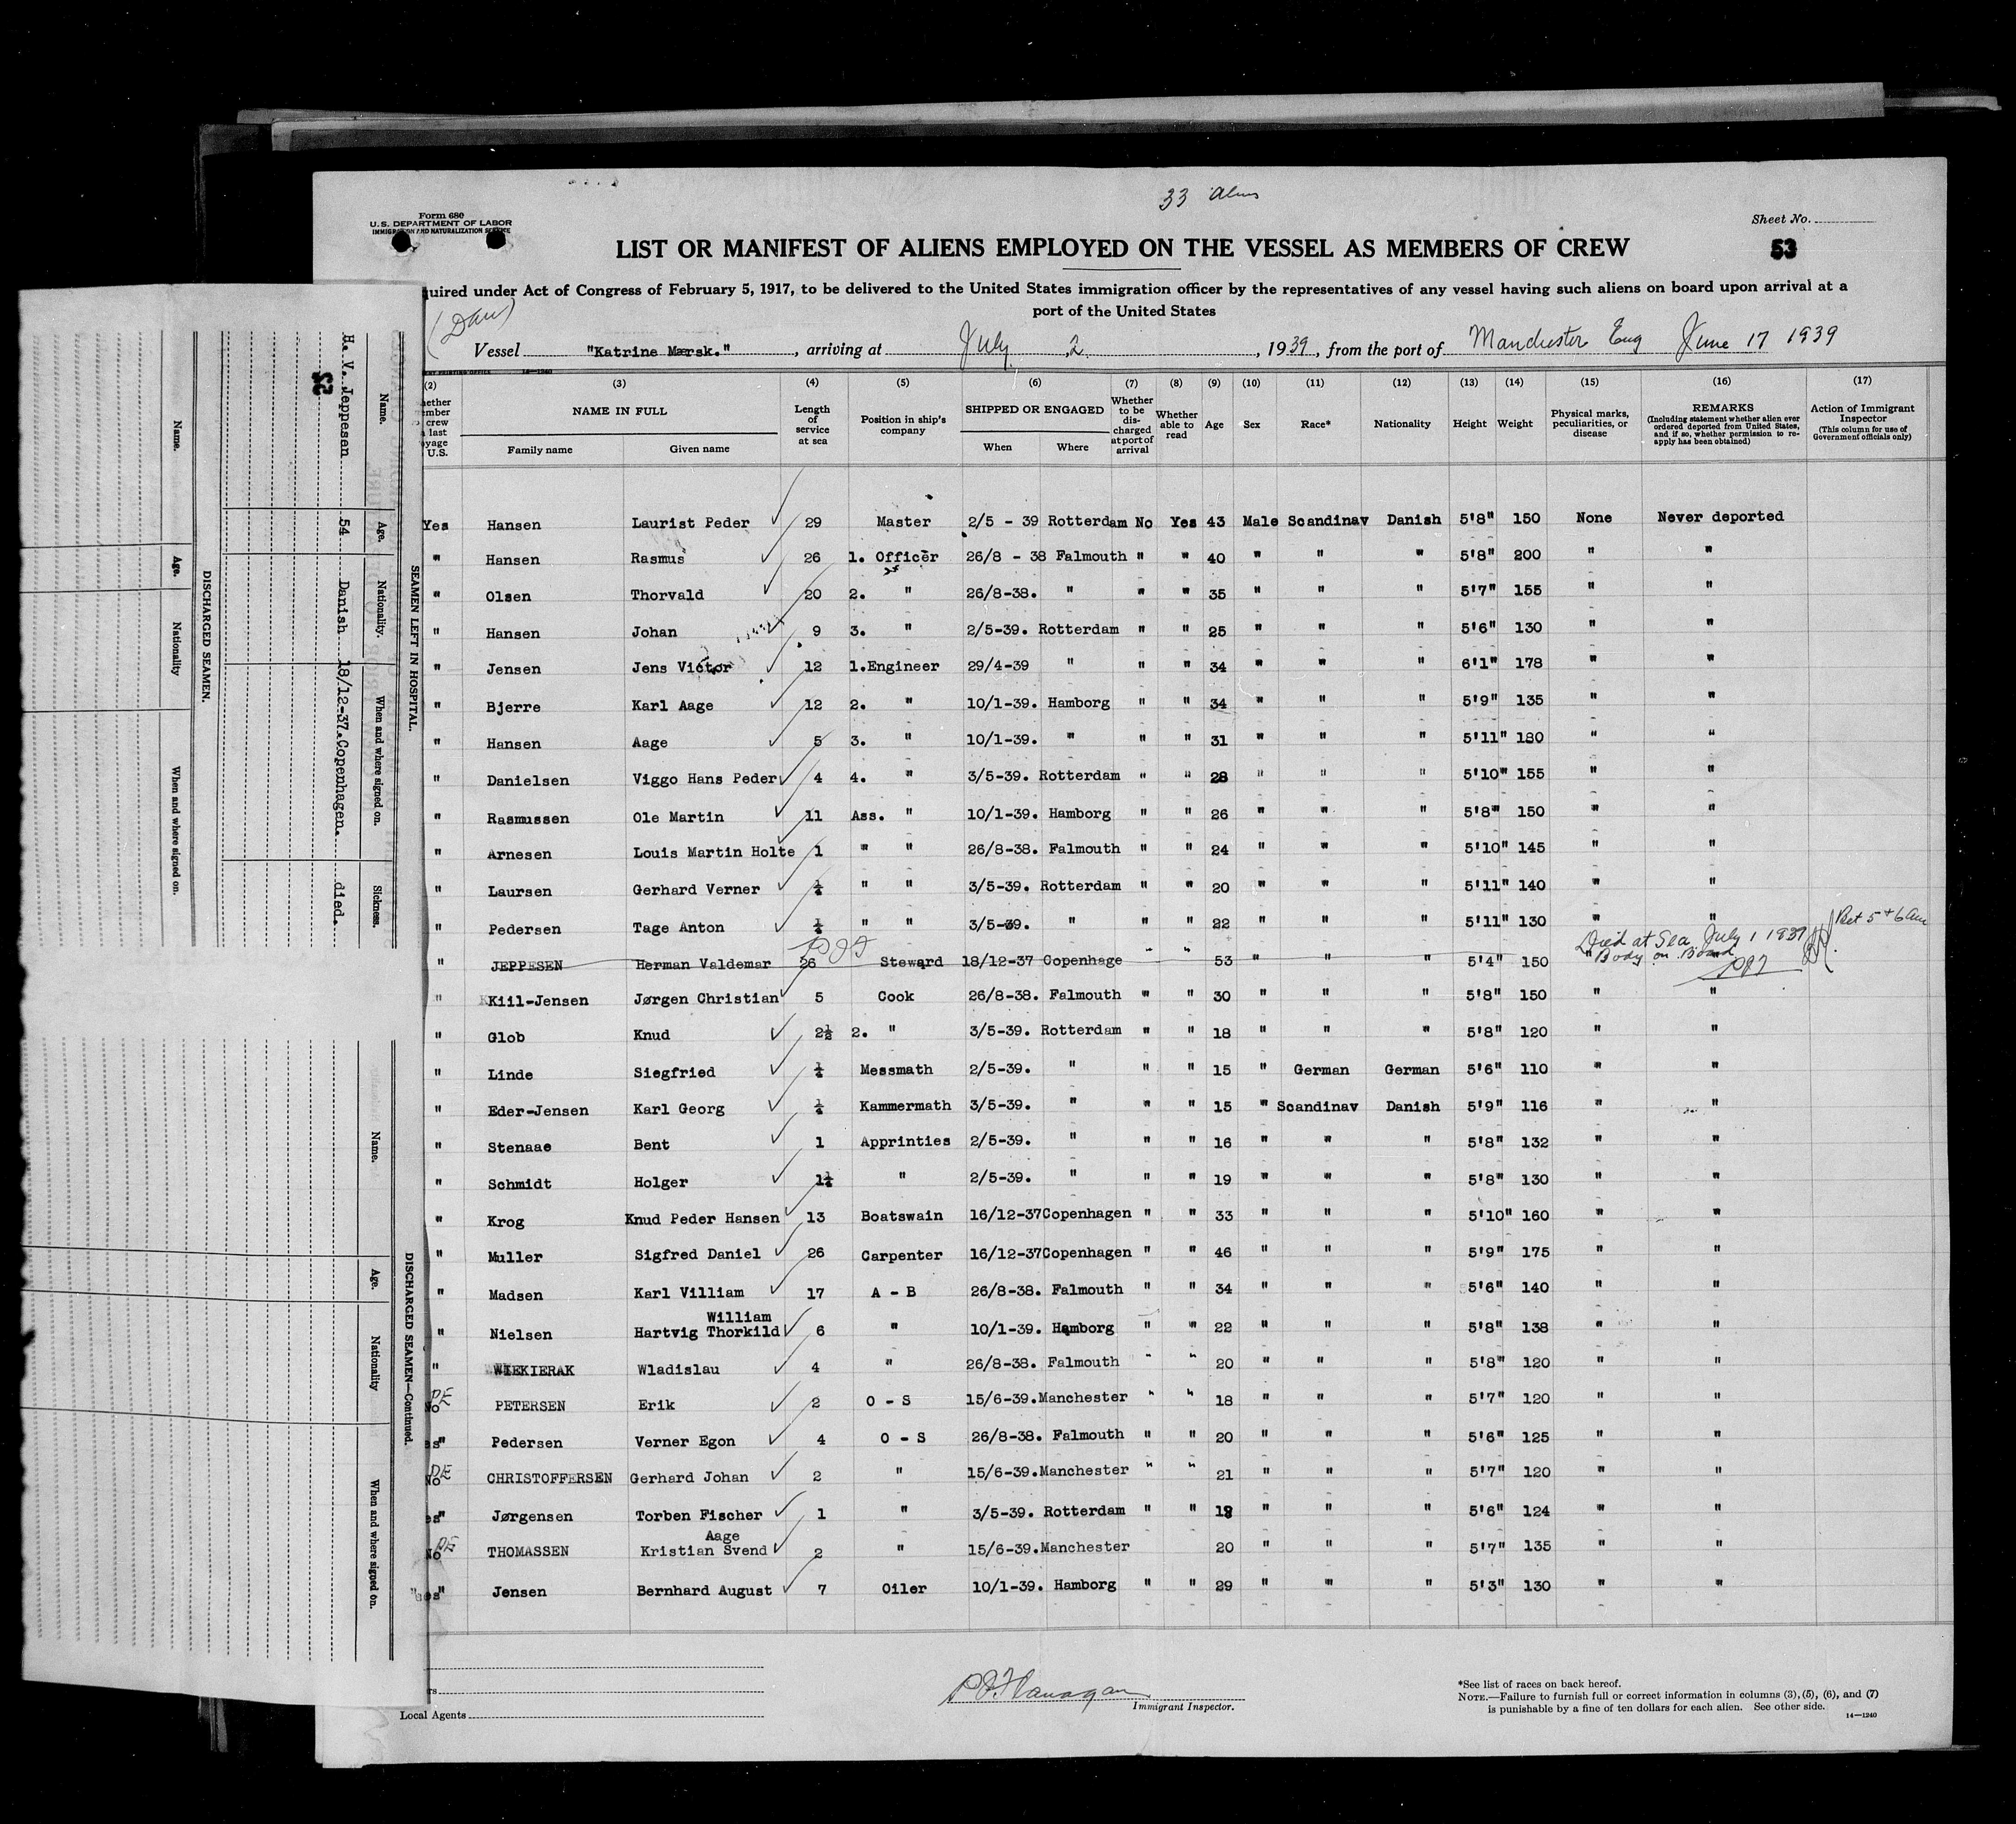 33 Aliens
Form 680
U.S. DEPARTMENT OF LABOR
IMMIGRATION AND NATURALIZATION SERVICE
Sheet No.
LIST OR MANIFEST OF ALIENS EMPLOYED ON THE VESSEL AS MEMBERS OF CREW
53
quired under Act of Congress of February 5, 1917, to be delivered to the United States immigration officer by the representatives of any vessel having such aliens on board upon arrival at a
port of the United States
(Dan)
Vessel "Katrine Mærsk." , arriving at July 2 , 1939, from the port of Manchester Eng June 17 1939
(2) (3) (4) (5) (6) (7) (8) (9) (10) (11) (12) (13) (14) (15) (16) (17)
ether ember crew last yage U.S.
NAME IN FULL
Family name Given name
Length of service at sea
Position in ship's company
SHIPPED OR ENGAGED
When Where
Whether to be discharged at port of arrival
Whether able to read
Age Sex Race* Nationality Height Weight
Physical marks, peculiarities, or disease
REMARKS
(Including statement whether alien ever ordered deported from United States, and if so, whether permission to reapply has been obtained)
Action of Immigrant Inspector
(This column for use of Government officials only)
Yes Hansen Laurist Peder 29 Master 2/5 - 39 Rotterdam No Yes 43 Male Scandinav Danish 5'8" 150 None Never deported
" Hansen Rasmus 26 1. Officer 26/8 - 38 Falmouth " " 40 " " " 5'8" 200 " "
" Olsen Thorvald 20 2. " 26/8-38. " " " 35 " " " 5'7" 155 " "
" Hansen Johan 9 3. " 2/5-39. Rotterdam " " 25 " " " 5'6" 130 " "
" Jensen Jens Victor 12 1.Engineer 29/4-39 " " " 34 " " " 6'1" 178 " "
" Bjerre Karl Aage 12 2. " 10/1-39. Hamborg " " 34 " " " 5'9" 135 " "
" Hansen Aage 5 3. " 10/1-39. " " " 31 " " " 5'11" 180 " "
" Danielsen Viggo Hans Peder 4 4. " 3/5-39. Rotterdam " " 28 " " " 5'10" 155 " "
" Rasmussen Ole Martin 11 Ass. " 10/1-39. Hamborg " " 26 " " " 5'8" 150 " "
" Arnesen Louis Martin Holte 1 " " 26/8-38. Falmouth " " 24 " " " 5'10" 145 " "
" Laursen Gerhard Verner " " 3/5-39. Rotterdam " " 20 " " " 5'11" 140 " "
" Pedersen Tage Anton " " 3/5-39. " " " 22 " " " 5'11" 130 " "
PJF
Died at Sea July 1 1939 Bet 5 + 6 am
" JEPPESEN Herman Valdemar 26 Steward 18/12-37 Copenhage " " 53 " " " 5'4" 150 " Body on Board
PJF
" Kiil-Jensen Jørgen Christian 5 Cook 26/8-38. Falmouth " " 30 " " " 5'8" 150 " "
" Glob Knud 2½ 2. " 3/5-39. Rotterdam " " 18 " " " 5'8" 120 " "
" Linde Siegfried Messmath 2/5-39. " " " 15 " German German 5'6" 110 " "
" Eder-Jensen Karl Georg Kammermath 3/5-39. " " " 15 " Scandinav Danish 5'9" 116 " "
" Stenaae Bent 1 Apprinties 2/5-39. " " " 16 " " " 5'8" 132 " "
" Schmidt Holger " 2/5-39. " " " 19 " " " 5'8" 130 " "
" Krog Knud Peder Hansen 13 Boatswain 16/12-37Copenhagen " " 33 " " " 5'10" 160 " "
" Muller Sigfred Daniel 26 Carpenter 16/12-37Copenhagen " " 46 " " " 5'9" 175 " "
" Madsen Karl Villiam 17 A - B 26/8-38. Falmouth " " 34 " " " 5'6" 140 " "
William
" Nielsen Hartvig Thorkild 6 " 10/1-39. Hamborg " " 22 " " " 5'8" 138 " "
" WIEKIERAK Wladislau 4 " 26/8-38. Falmouth " " 20 " " " 5'8" 120 " "
No PE PETERSEN Erik 2 O - S 15/6-39.Manchester " " 18 " " " 5'7" 120 " "
es" Pedersen Verner Egon 4 O - S 26/8-38. Falmouth " " 20 " " " 5'6" 125 " "
No PE CHRISTOFFERSEN Gerhard Johan 2 " 15/6-39.Manchester " " 21 " " " 5'7" 120 " "
es" Jørgensen Torben Fischer 1 " 3/5-39. Rotterdam " " 18 " " " 5'6" 124 " "
Aage
No PE THOMASSEN Kristian Svend 2 " 15/6-39.Manchester 20 " " " 5'7" 135 " "
es" Jensen Bernhard August 7 Oiler 10/1-39. Hamborg " " 29 " " " 5'3" 130 " "
rs
Local Agents
P J Flanagan
Immigrant Inspector.
*See list of races on back hereof.
NOTE.—Failure to furnish full or correct information in columns (3), (5), (6), and (7)
is punishable by a fine of ten dollars for each alien. See other side.
14—1240
SEAMEN LEFT IN HOSPITAL.
Name. Age. Nationality. When and where signed on. Sickness.
H. V. Jeppesen 54 Danish 18/12-37.Copenhagen. died.
53
DISCHARGED SEAMEN.
Name. Age. Nationality When and where signed on.
DISCHARGED SEAMEN—Continued.
Name. Age. Nationality When and where signed on.